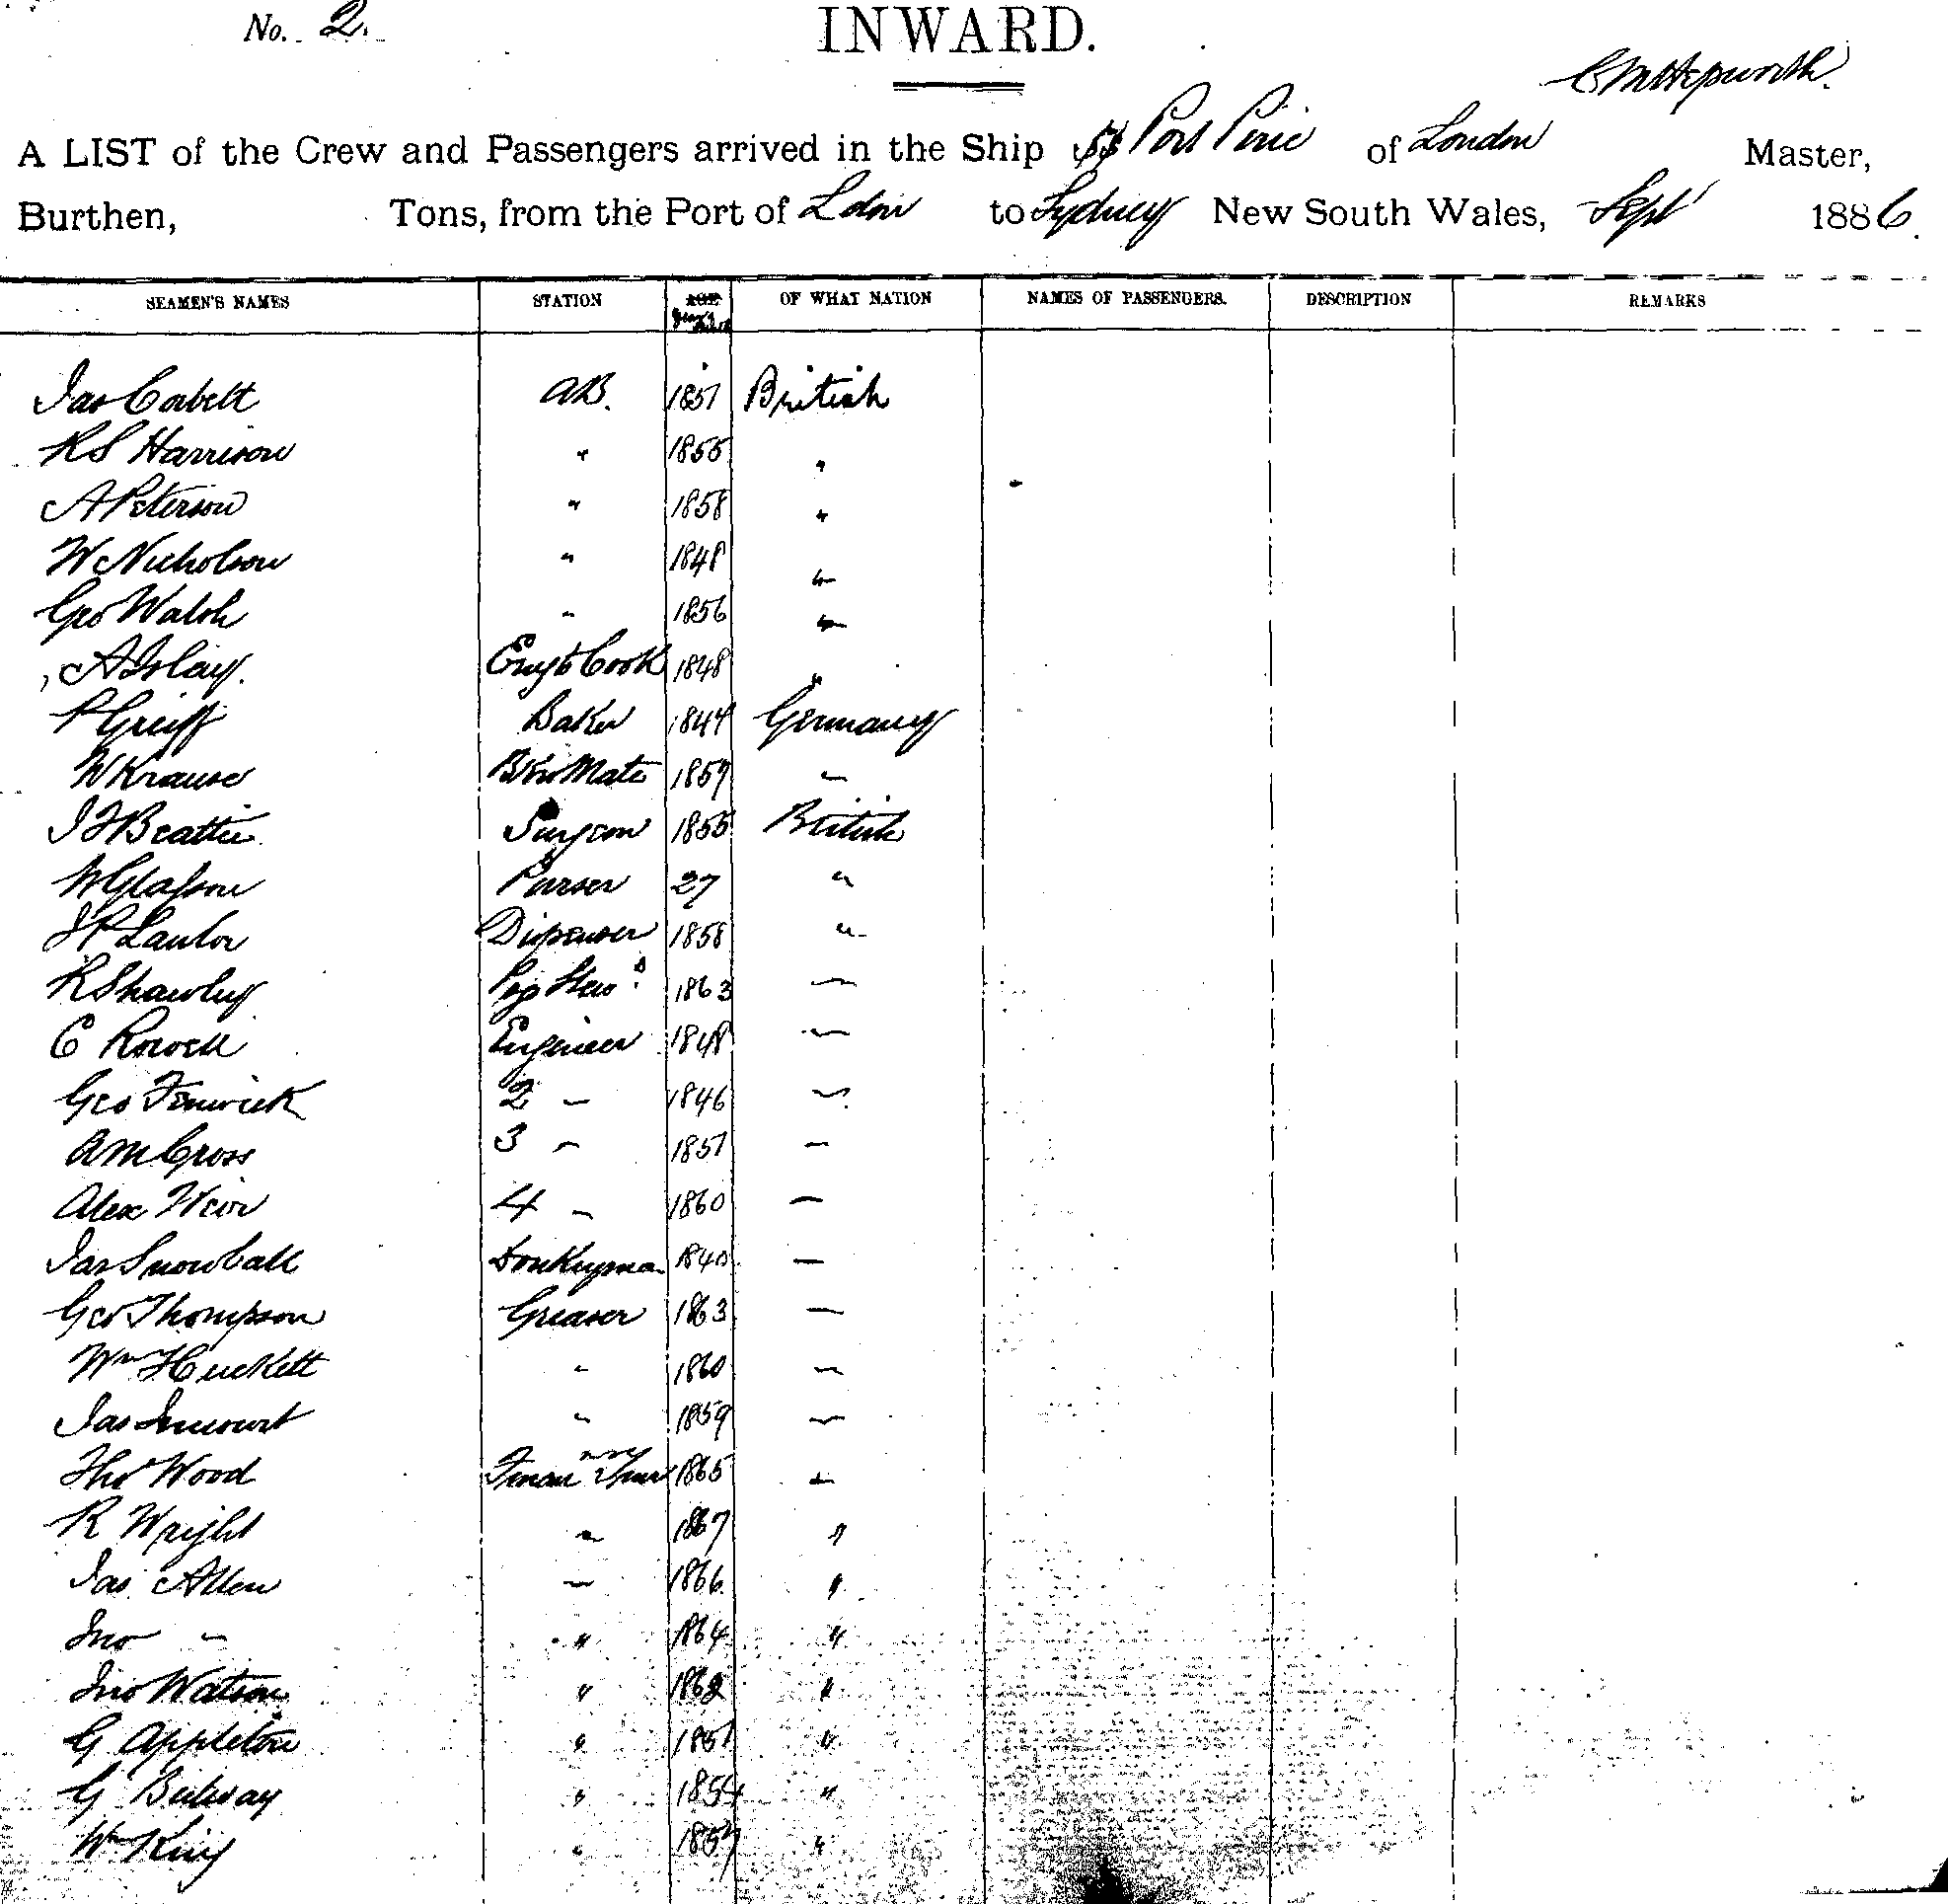 No. 2.
INWARD.
C M Hepworth.
A LIST of the Crew and Passengers arrived in the Ship SS Port Pirie of London Master,
Burthen, Tons, from the Port of Ldon to Sydney New South Wales, Sept 1886.
SEAMEN'S NAMES STATION AGE OF WHAT NATION NAMES OF PASSENGERS. DESCRIPTION REMARKS
Jas Corbett AB. 1857 British
R S Harrison " 1855 "
A Peterson " 1858 "
W Nicholson " 1848 "
Geo Walsh " 1856 "
A Islay. Cook 1848 "
P Greiff Baker 1844 Germany
W Krause Bkrs Mate 1859 "
J F Beattie Surgeon 1855 British
W Glasson Purser 27 "
J P Lawlor Dispenser 1858 "
R Shawley 1863 "
C Rowell Engineer 1848 "
Geo Fenwick 2 " 1846 "
A M Cross 3 " 1857 "
Alex Weir 4 " 1860 "
Jas Snowball Donkeyman 1840 "
Geo Thompson Greaser 1863 "
Wm Huckett " 1860 "
Jas " 1859 "
Thos Wood 1865 "
R Wright " 1867 "
Jas Allen " 1866 "
Jno " " 1864 "
Jno Watson " 1862 "
G Appleton " 1851 "
G " 1854 "
Wm King " 1857 "